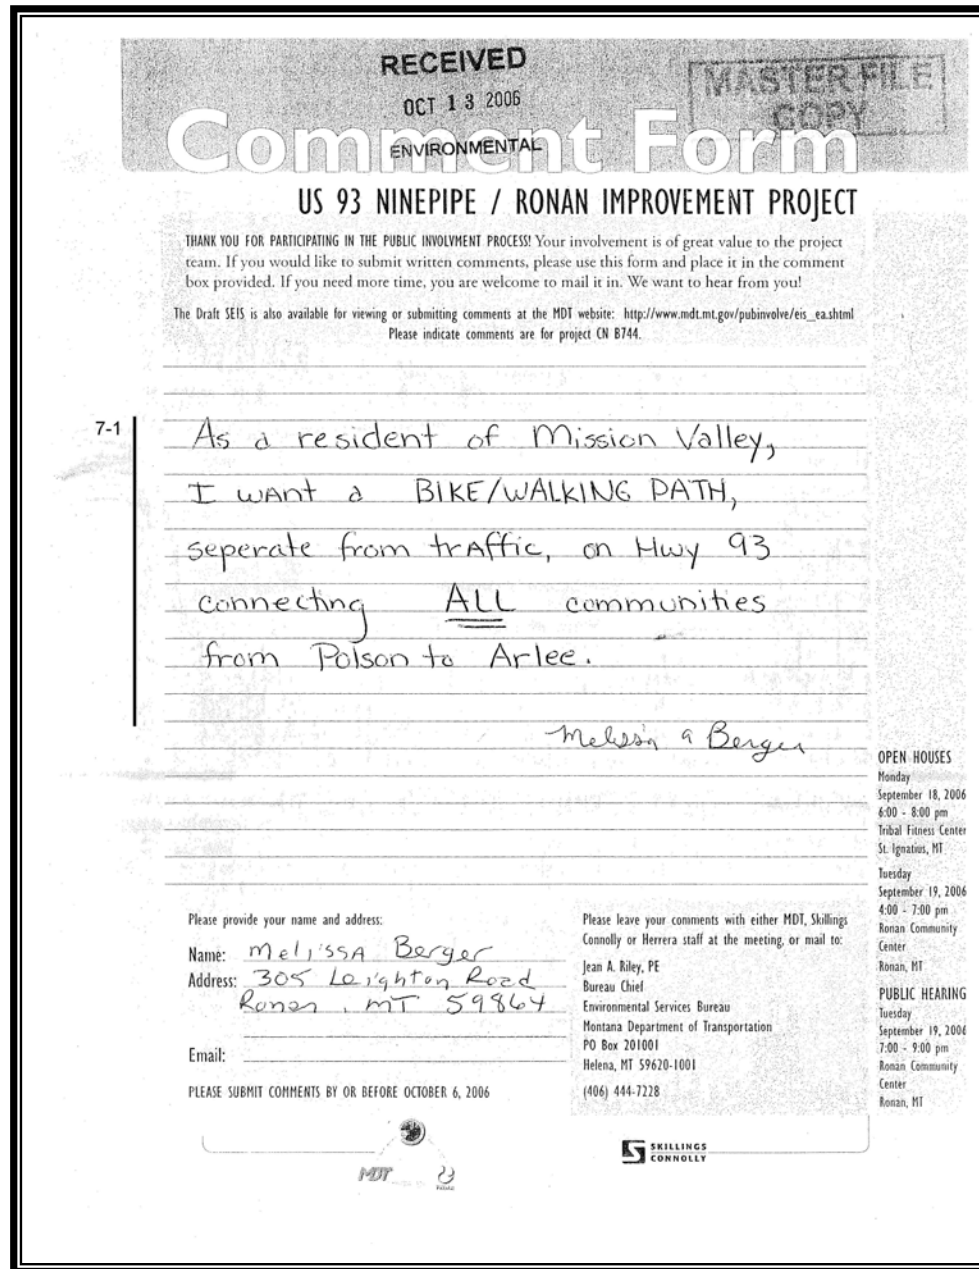 RECEIVED
OCT 13 2006
ENVIRONMENTAL
MASTER FILE
COPY
Comment Form
US 93 NINEPIPE / RONAN IMPROVEMENT PROJECT
THANK YOU FOR PARTICIPATING IN THE PUBLIC INVOLVMENT PROCESS! Your involvement is of great value to the project
team. If you would like to submit written comments, please use this form and place it in the comment
box provided. If you need more time, you are welcome to mail it in. We want to hear from you!
The Draft SEIS is also available for viewing or submitting comments at the MDT website: http://www.mdt.mt.gov/pubinvolve/eis_ea.shtml
Please indicate comments are for project CN B744.
7-1
As a resident of Mission Valley,
I want a BIKE/WALKING PATH,
seperate from traffic, on Hwy 93
connecting ALL communities
from Polson to Arlee.
Melissa A Berger
Please provide your name and address:
Name: Melissa Berger
Address: 305 Leighton Road
Ronan, MT 59864
Email:
PLEASE SUBMIT COMMENTS BY OR BEFORE OCTOBER 6, 2006
Please leave your comments with either MDT, Skillings
Connolly or Herrera staff at the meeting, or mail to:
Jean A. Riley, PE
Bureau Chief
Environmental Services Bureau
Montana Department of Transportation
PO Box 201001
Helena, MT 59620-1001
(406) 444-7228
OPEN HOUSES
Monday
September 18, 2006
6:00 - 8:00 pm
Tribal Fitness Center
St. Ignatius, MT
Tuesday
September 19, 2006
4:00 - 7:00 pm
Ronan Community
Center
Ronan, MT
PUBLIC HEARING
Tuesday
September 19, 2006
7:00 - 9:00 pm
Ronan Community
Center
Ronan, MT
MDT
SKILLINGS
CONNOLLY